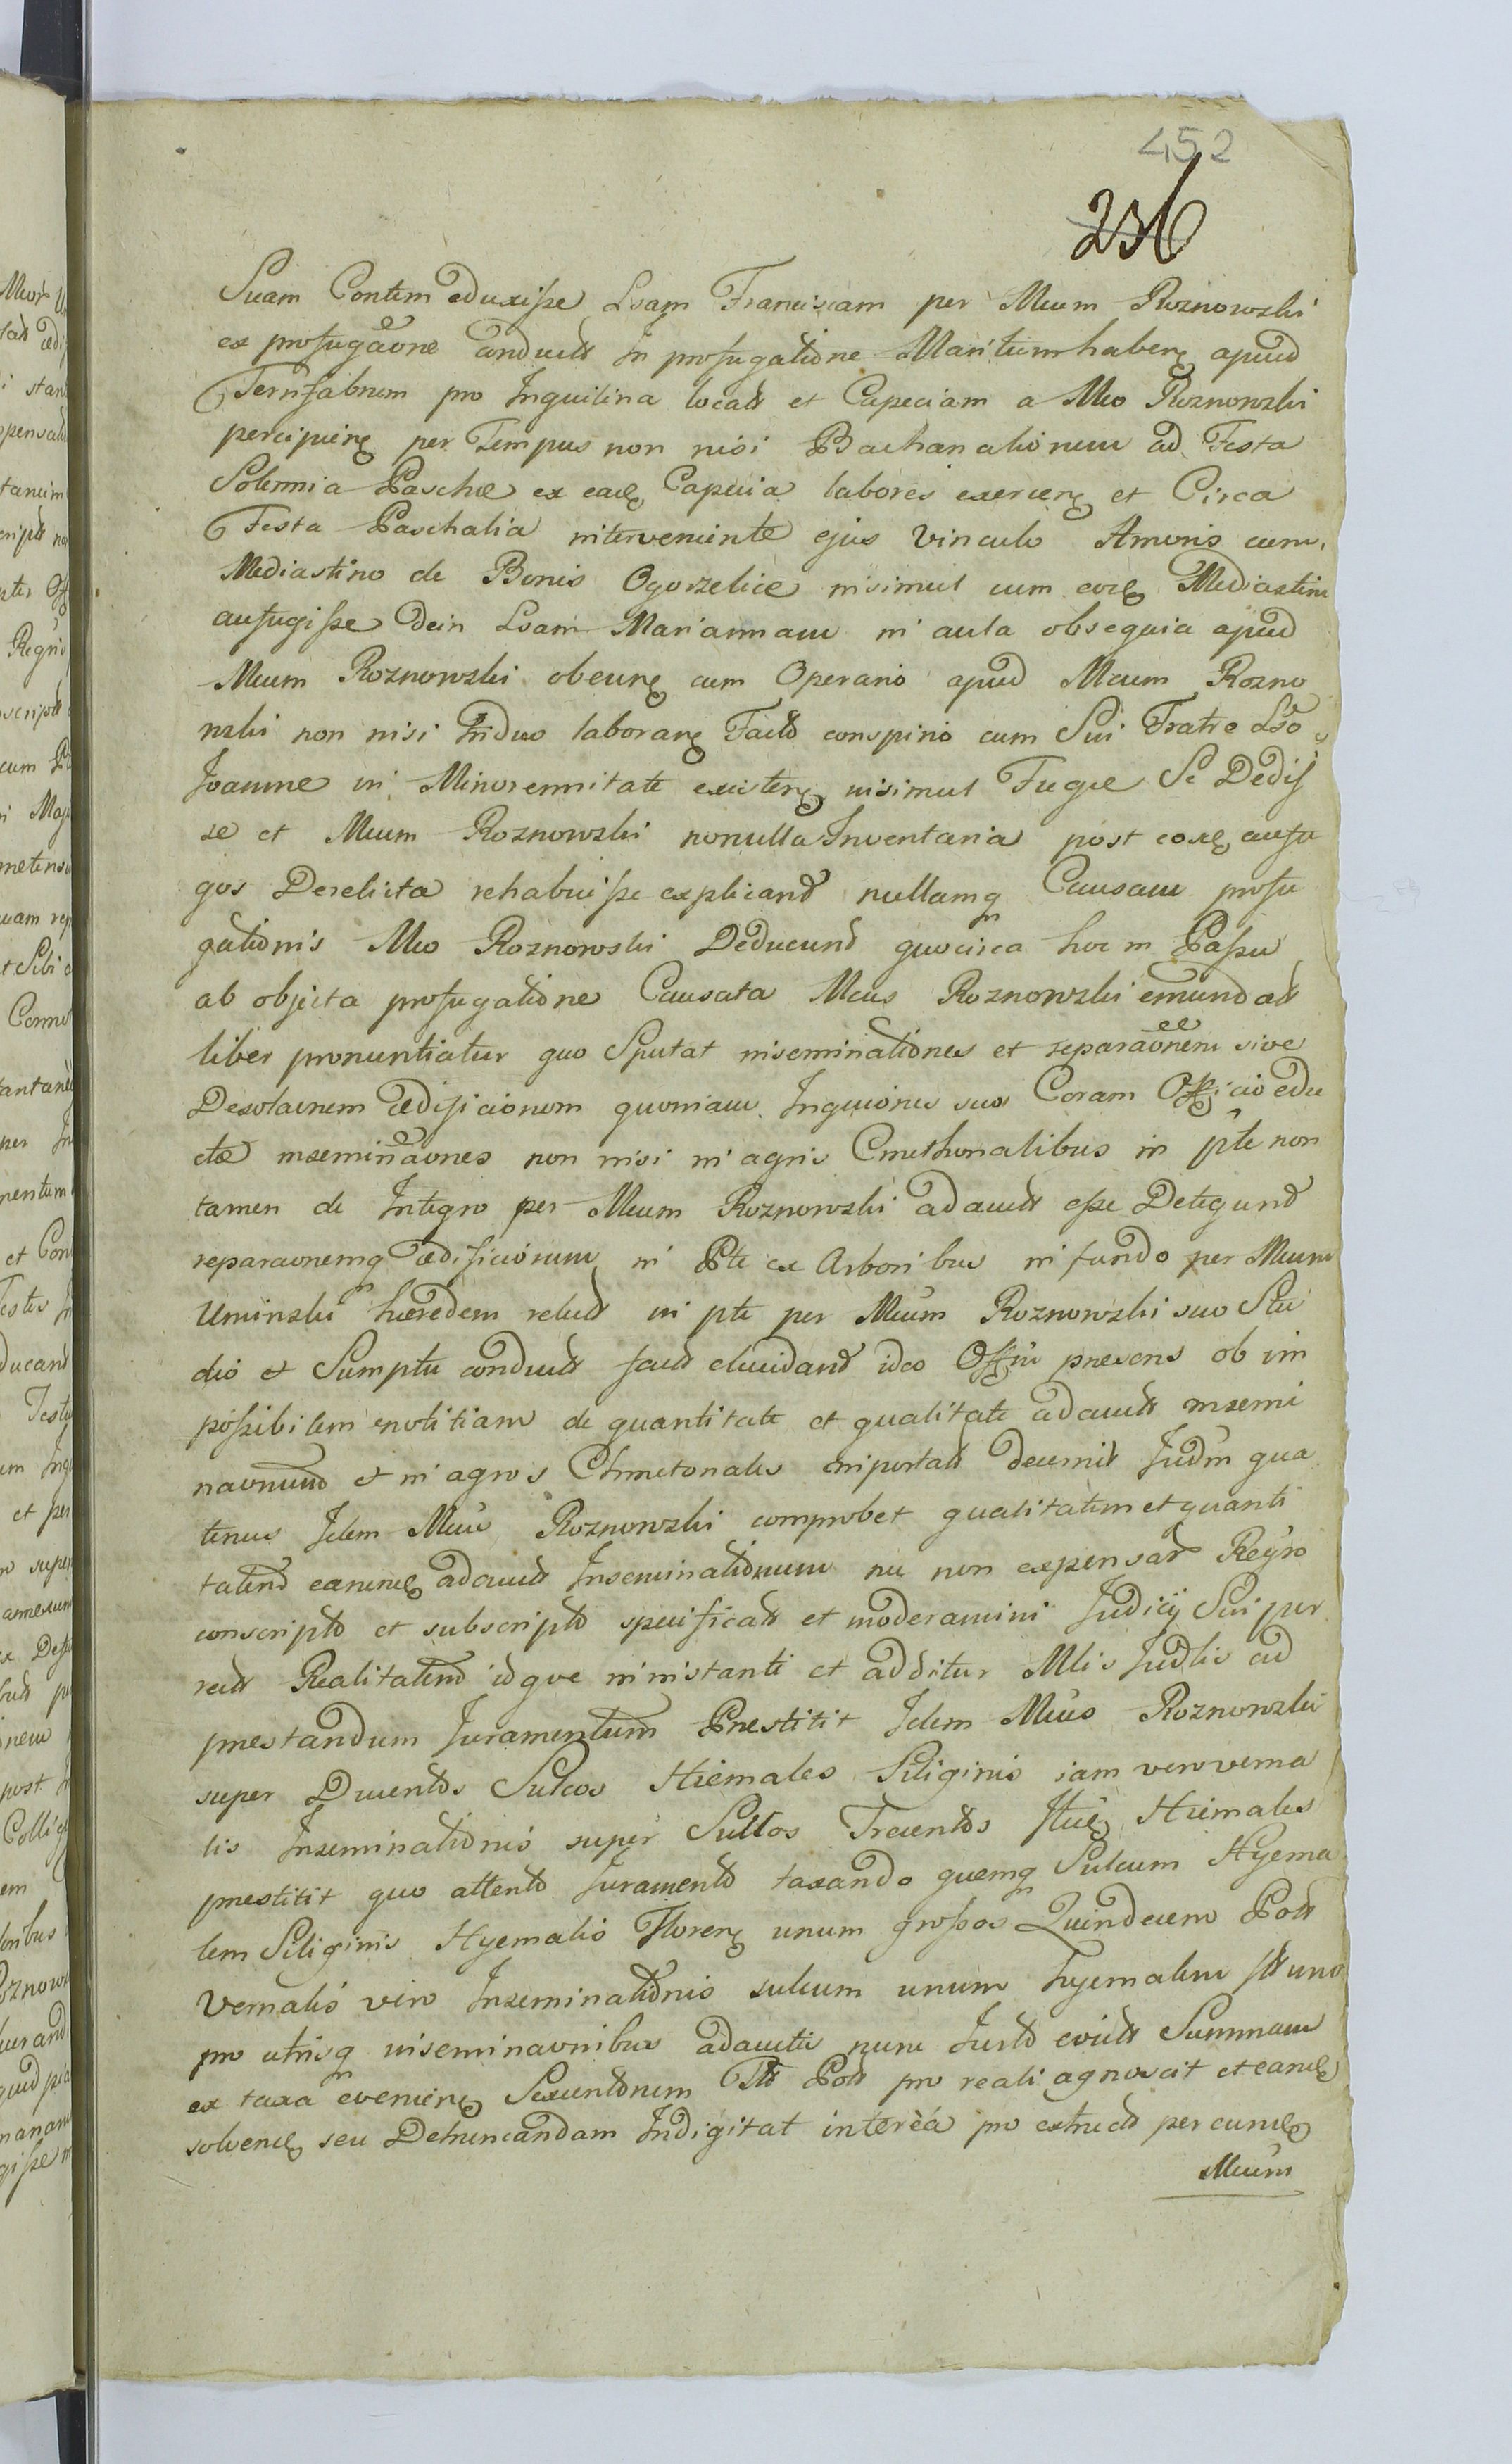 452
256
Suam Contem eduxisse Lsam Franciscam per Mcum Roznowski
ex profugaone conduct In profugatione Maritum haben apud
Ternfabrum pro Inquilina locat et Capeciam a Mco Roznowski
percipien per Tempus non nisi Bachanalionum ad Festa
Solennia Paschae ex ead Capecia labores exercen et Circa
Festa Paschalia interveniente ejus vinculo Amoris cum
Mediastino de Bonis Ogorzelice insimul cum eod Mediastino
aufugisse dein Lsam Mariannam in aula obsequia apud
Mcum Roznowski obeun cum Operario apud Mcum Rozno
wski non nisi triduo laboran Facto conspirio cum Sui Fratre Lso
Joanne in Minorennitate existen insimul Fugae Se Dedis
se et Mcum Roznowski nonulla Inventaria post eosd aufu
gos Derelicta rehabuisse explicand nullamq Causam profu
gationis Mco Roznowski Deducund quocirca hoc in Passu
ab objecta profugatione Causata Mcus Roznowski emundat
liber pronuntiatur quo Sputat inseminationes et reparaonem sive
Desolaonem aedificionum quoniam Inquiones suas Coram Officio edu
ctae inseminaones non nisi in agris Cmethonalibus in pte non
tamen de Integro per Mcum Roznowski adauct esse Detegund
reparaonemq aedificiorum in Pte ex Arboribus in fundo per Mcum
Uminski haeredem relict in pte per Mcum Roznowski suo Stu
dio et Sumptu conduct fact elucidand ideo Offm praesens ob im
possibilem enotitiam de quantitate et qualitate adauct insemi
naonum et in agros Chmetonales importat decernit Judm qua
tenus Idem Mcus Roznowski comprobet qualitatem et quanti
tatem earund adauct Inseminationum nec non expensar Regro
conscripto et subscripto specificat et moderamini Judicij Sui per
rect Realitatem idque in instanti et additur Mlis Judlis ad
praestandum Juramentum Praestitit Idem Mcus Roznowski
super Ducentos Sulcos Hiemales Siliginis iam vero verna
lis Inseminationis super Sulcos Trecentos Itid Hiemales
praestitit quo attento Juramento taxando quemq Sulcum Hyema
lem Siliginis Hyemalis Floren unum grossos Quindecem Poll
Vernalis vero Inseminationis sulcum unum hyemalem flt uno
pro utrisq inseminaonibus adauctis nunc Jurto evict Summam
ex taxa evenien Sexcentorum Flt Poll pro reali agnoscit et eand
solvend seu Detruncandam Indigitat intereà pro extruct per eund
Mcum